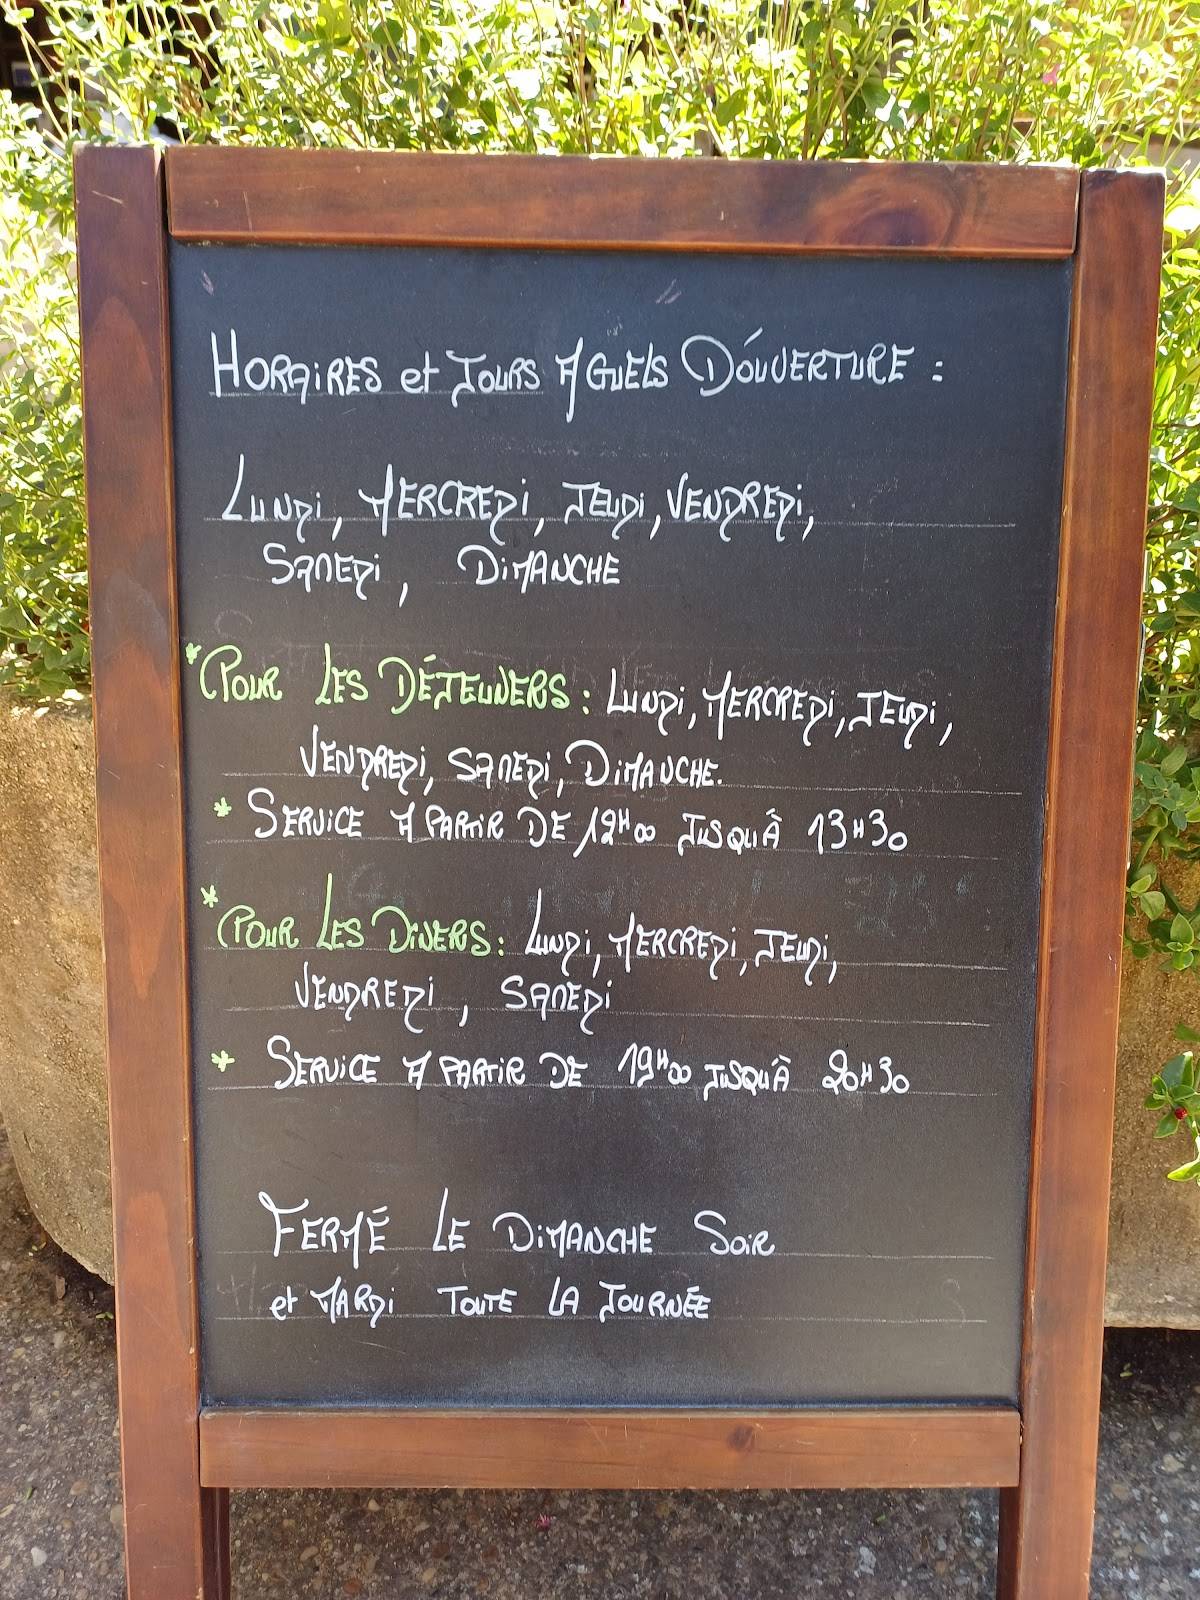 HORAIRES et JOURS AGUELS D'OUVERTURE :
LUNDI, MERCREDI, JEUDI, VENDREDI,
SAMEDI, DIMANCHE
*POUR LES DÉJEUNERS : LUNDI, MERCREDI, JEUDI,
VENDREDI, SAMEDI, DIMANCHE.
* SERVICE A PARTIR DE 12H00 JUSQU'À 13H30
*POUR LES DINERS : LUNDI, MERCREDI, JEUDI,
VENDREDI, SAMEDI
* SERVICE A PARTIR DE 19H00 JUSQU'À 20H30
FERMÉ LE DIMANCHE SOIR
et MARDI TOUTE LA JOURNÉE